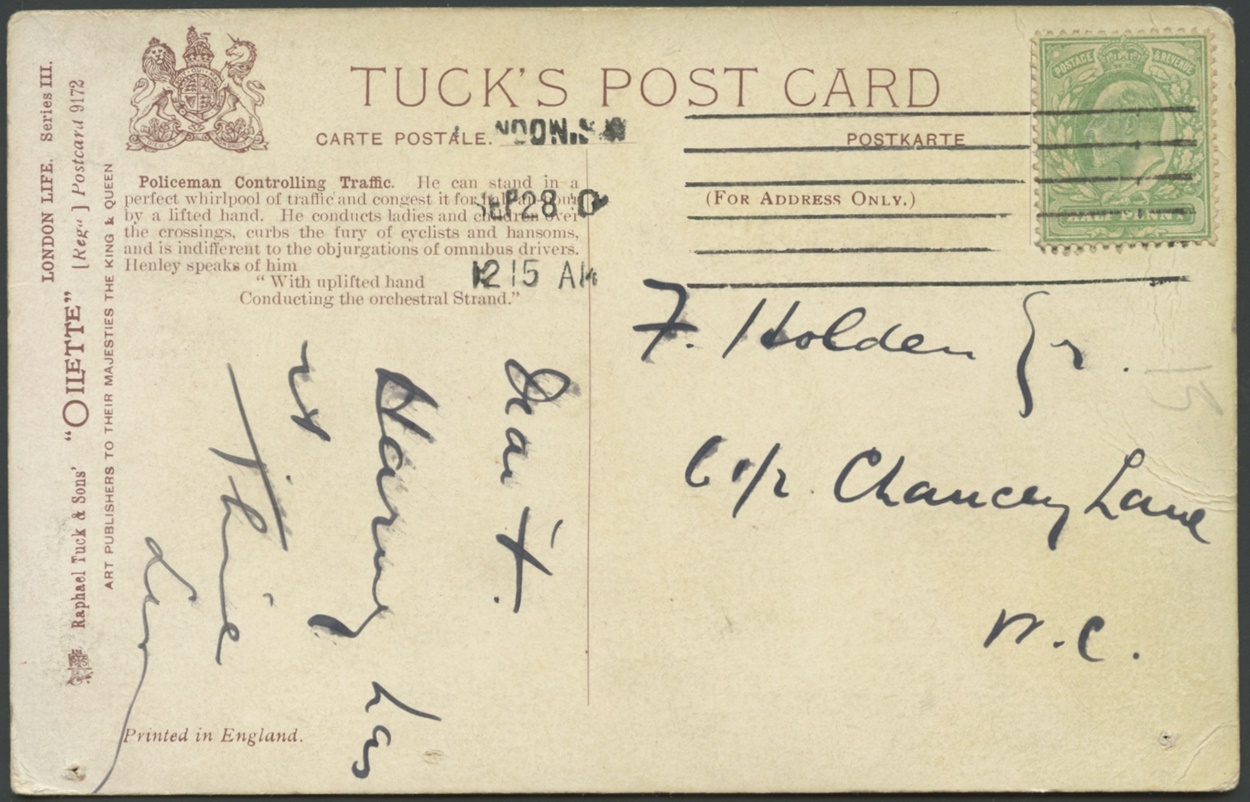 TUCK'S POST CARD
CARTE POSTALE.
POSTKARTE
(FOR ADDRESS ONLY.)
POSTAGE & REVENUE
SEP 28 0
12 15 AM
Policeman Controlling Traffic. He can stand in a
perfect whirlpool of traffic and congest it for half-an-hour
by a lifted hand. He conducts ladies and children over
the crossings, curbs the fury of cyclists and hansoms,
and is indifferent to the objurgations of omnibus drivers.
Henley speaks of him
"With uplifted hand
Conducting the orchestral Strand."
LONDON LIFE. Series III.
Raphael Tuck & Sons' "OILETTE" [Regd.] Postcard 9172
ART PUBLISHERS TO THEIR MAJESTIES THE KING & QUEEN
Printed in England.
F. Holden
Chancey Lane
W.C.
Harry has